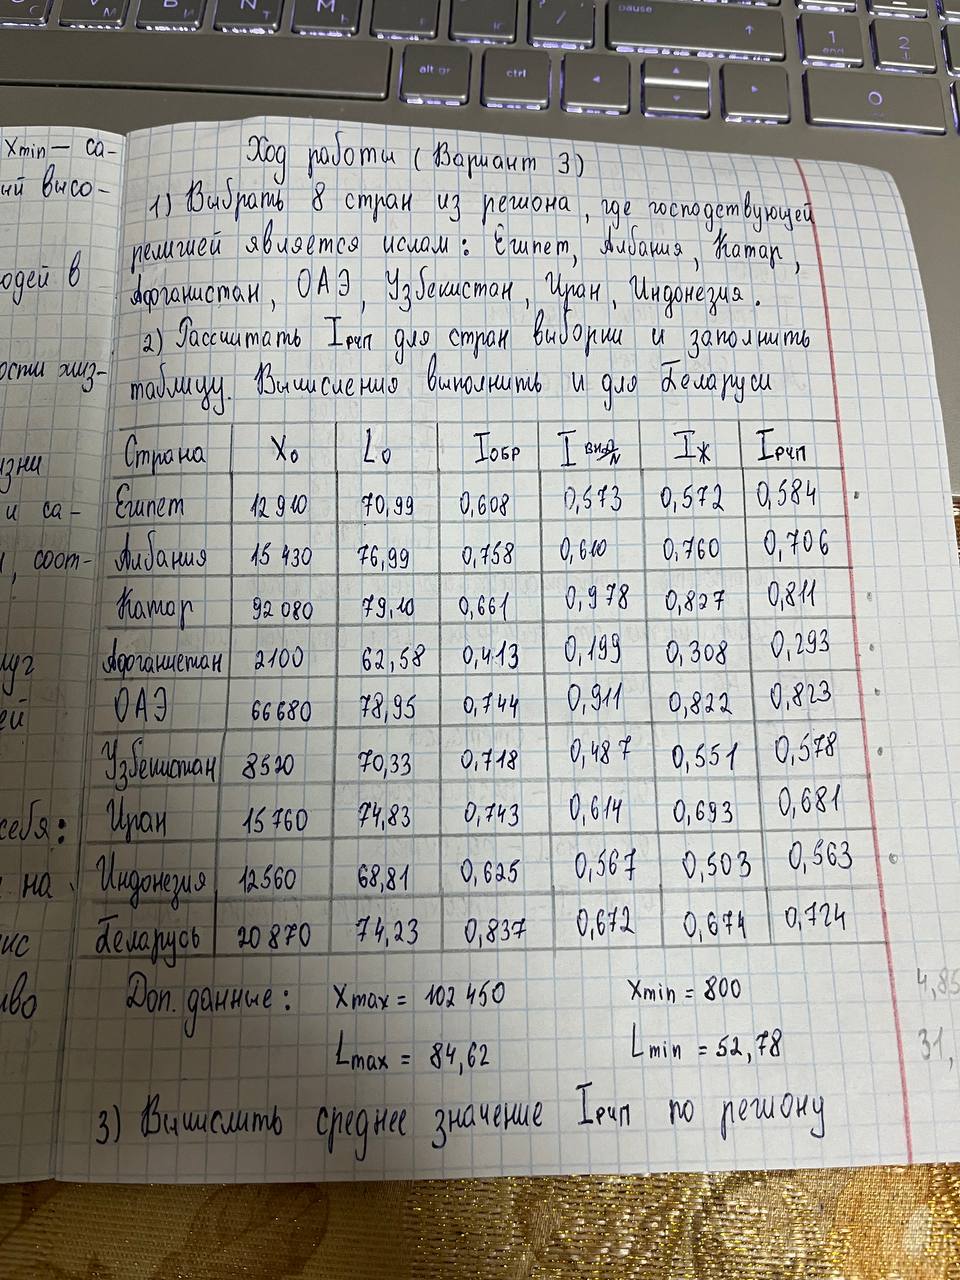 pause
alt gr
ctrl
1
end
2
0
Xmin — са-
ый высо-
юдей в
ости жиз-
изни
и са-
, соот-
луг
ей
себя:
на
кс
во
Ход работы (Вариант 3)
1) Выбрать 8 стран из региона, где господствующей
религией является ислам: Египет, Албания, Катар,
Афганистан, ОАЭ, Узбекистан, Иран, Индонезия.
2) Рассчитать Iрчп для стран выборки и заполнить
таблицу. Вычисления выполнить и для Беларуси
Страна X₀ L₀ Iобр Iвнд/N Iж Iрчп
Египет 12 910 70,99 0,608 0,573 0,572 0,584
Албания 15 430 76,99 0,758 0,610 0,760 0,706
Катар 92 080 79,10 0,661 0,978 0,827 0,811
Афганистан 2100 62,58 0,413 0,199 0,308 0,293
ОАЭ 66 680 78,95 0,744 0,911 0,822 0,823
Узбекистан 8520 70,33 0,718 0,487 0,551 0,578
Иран 15 760 74,83 0,743 0,614 0,693 0,681
Индонезия 12560 68,81 0,625 0,567 0,503 0,563
Беларусь 20 870 74,23 0,837 0,672 0,674 0,724
Доп. данные: Xmax = 102 450 Xmin = 800
Lmax = 84,62 Lmin = 52,78
3) Вычислить среднее значение Iрчп по региону
4,85
31,